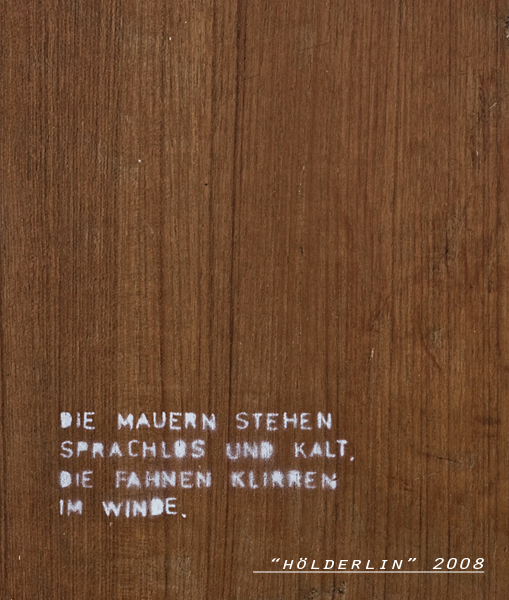 DIE MAUERN STEHEN
SPRACHLOS UND KALT,
DIE FAHNEN KLIRREN
IM WINDE.
“HÖLDERLIN” 2008